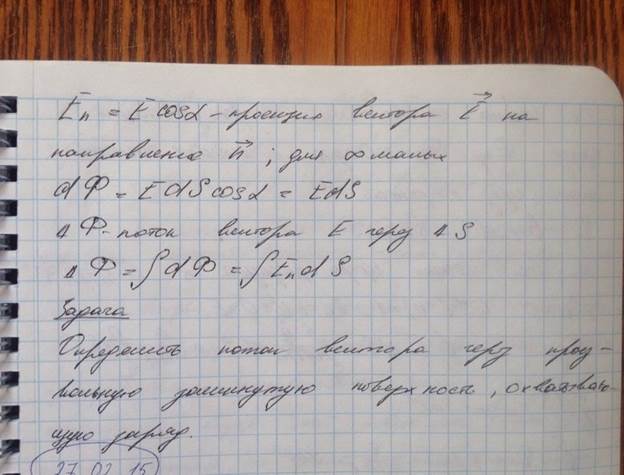 En = E cosα - проекция вектора E⃗ на
направление n⃗; для ∞ малых
dФ = E dS cosα = EdS
ΔФ - поток вектора E через ΔS
ΔФ = ∫dФ = ∫EndS
Задача
Определить поток вектора через произ-
вольную замкнутую поверхность, охватываю-
щую заряд.
27 02 15